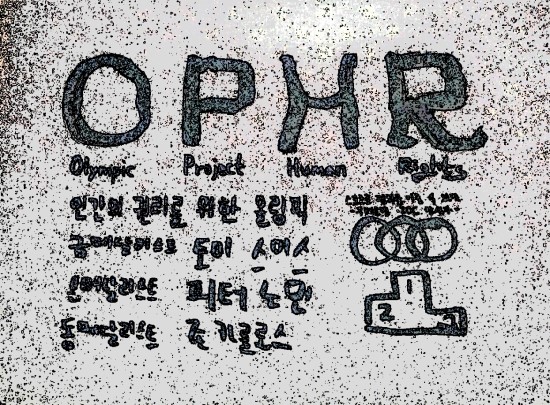 OPHR
Olympic Project Human Rights
인간의 권리를 위한 올림픽
금메달리스트 토미 스미스
은메달리스트 피터 노먼
동메달리스트 존 카를로스
1
2